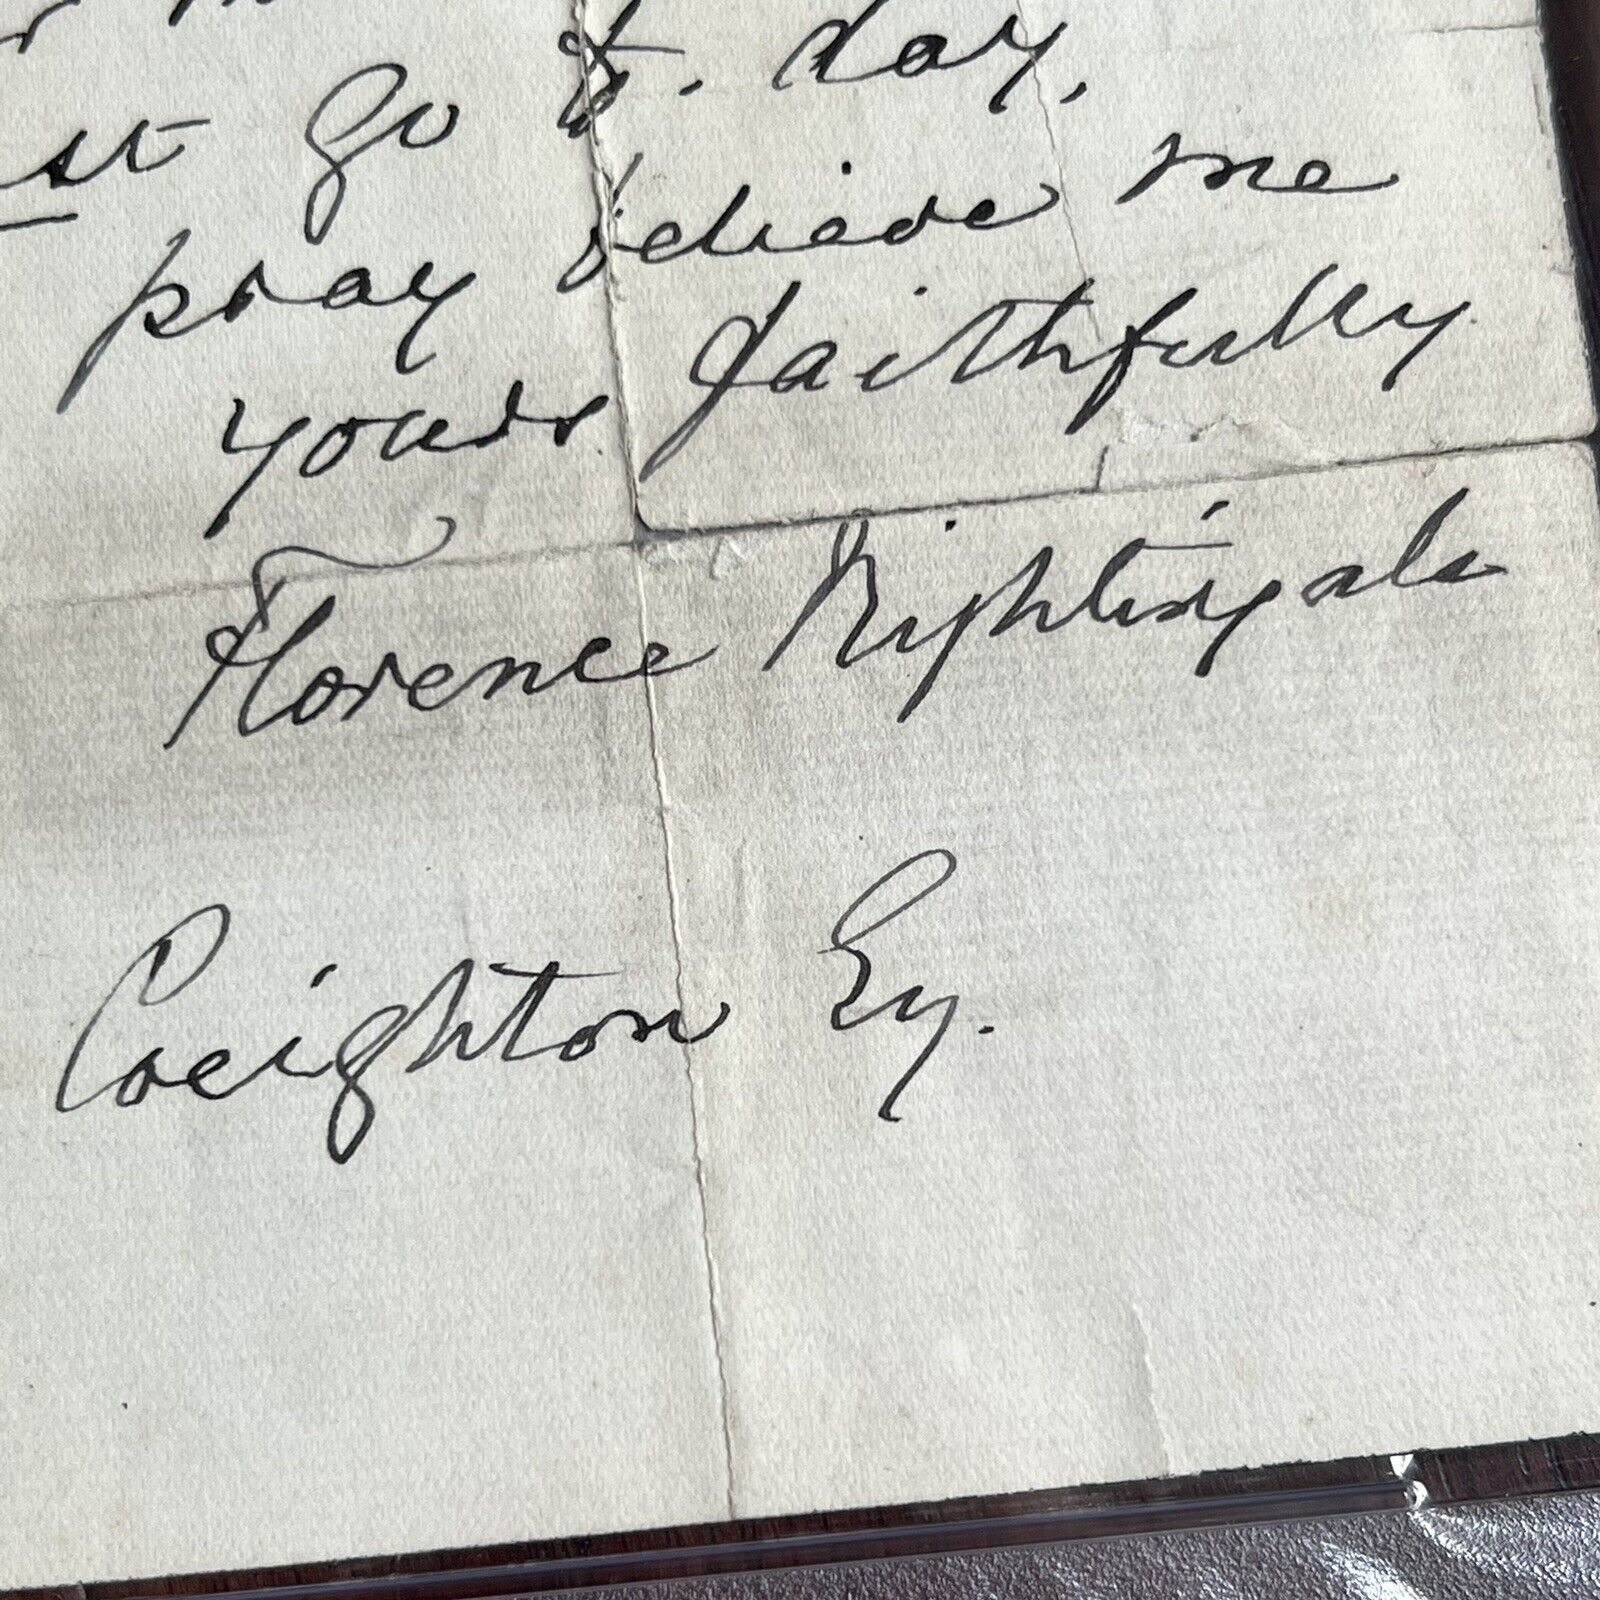 st go to. day.
pray believe me
yours faithfully
Florence Nightingale
Creighton Esq.